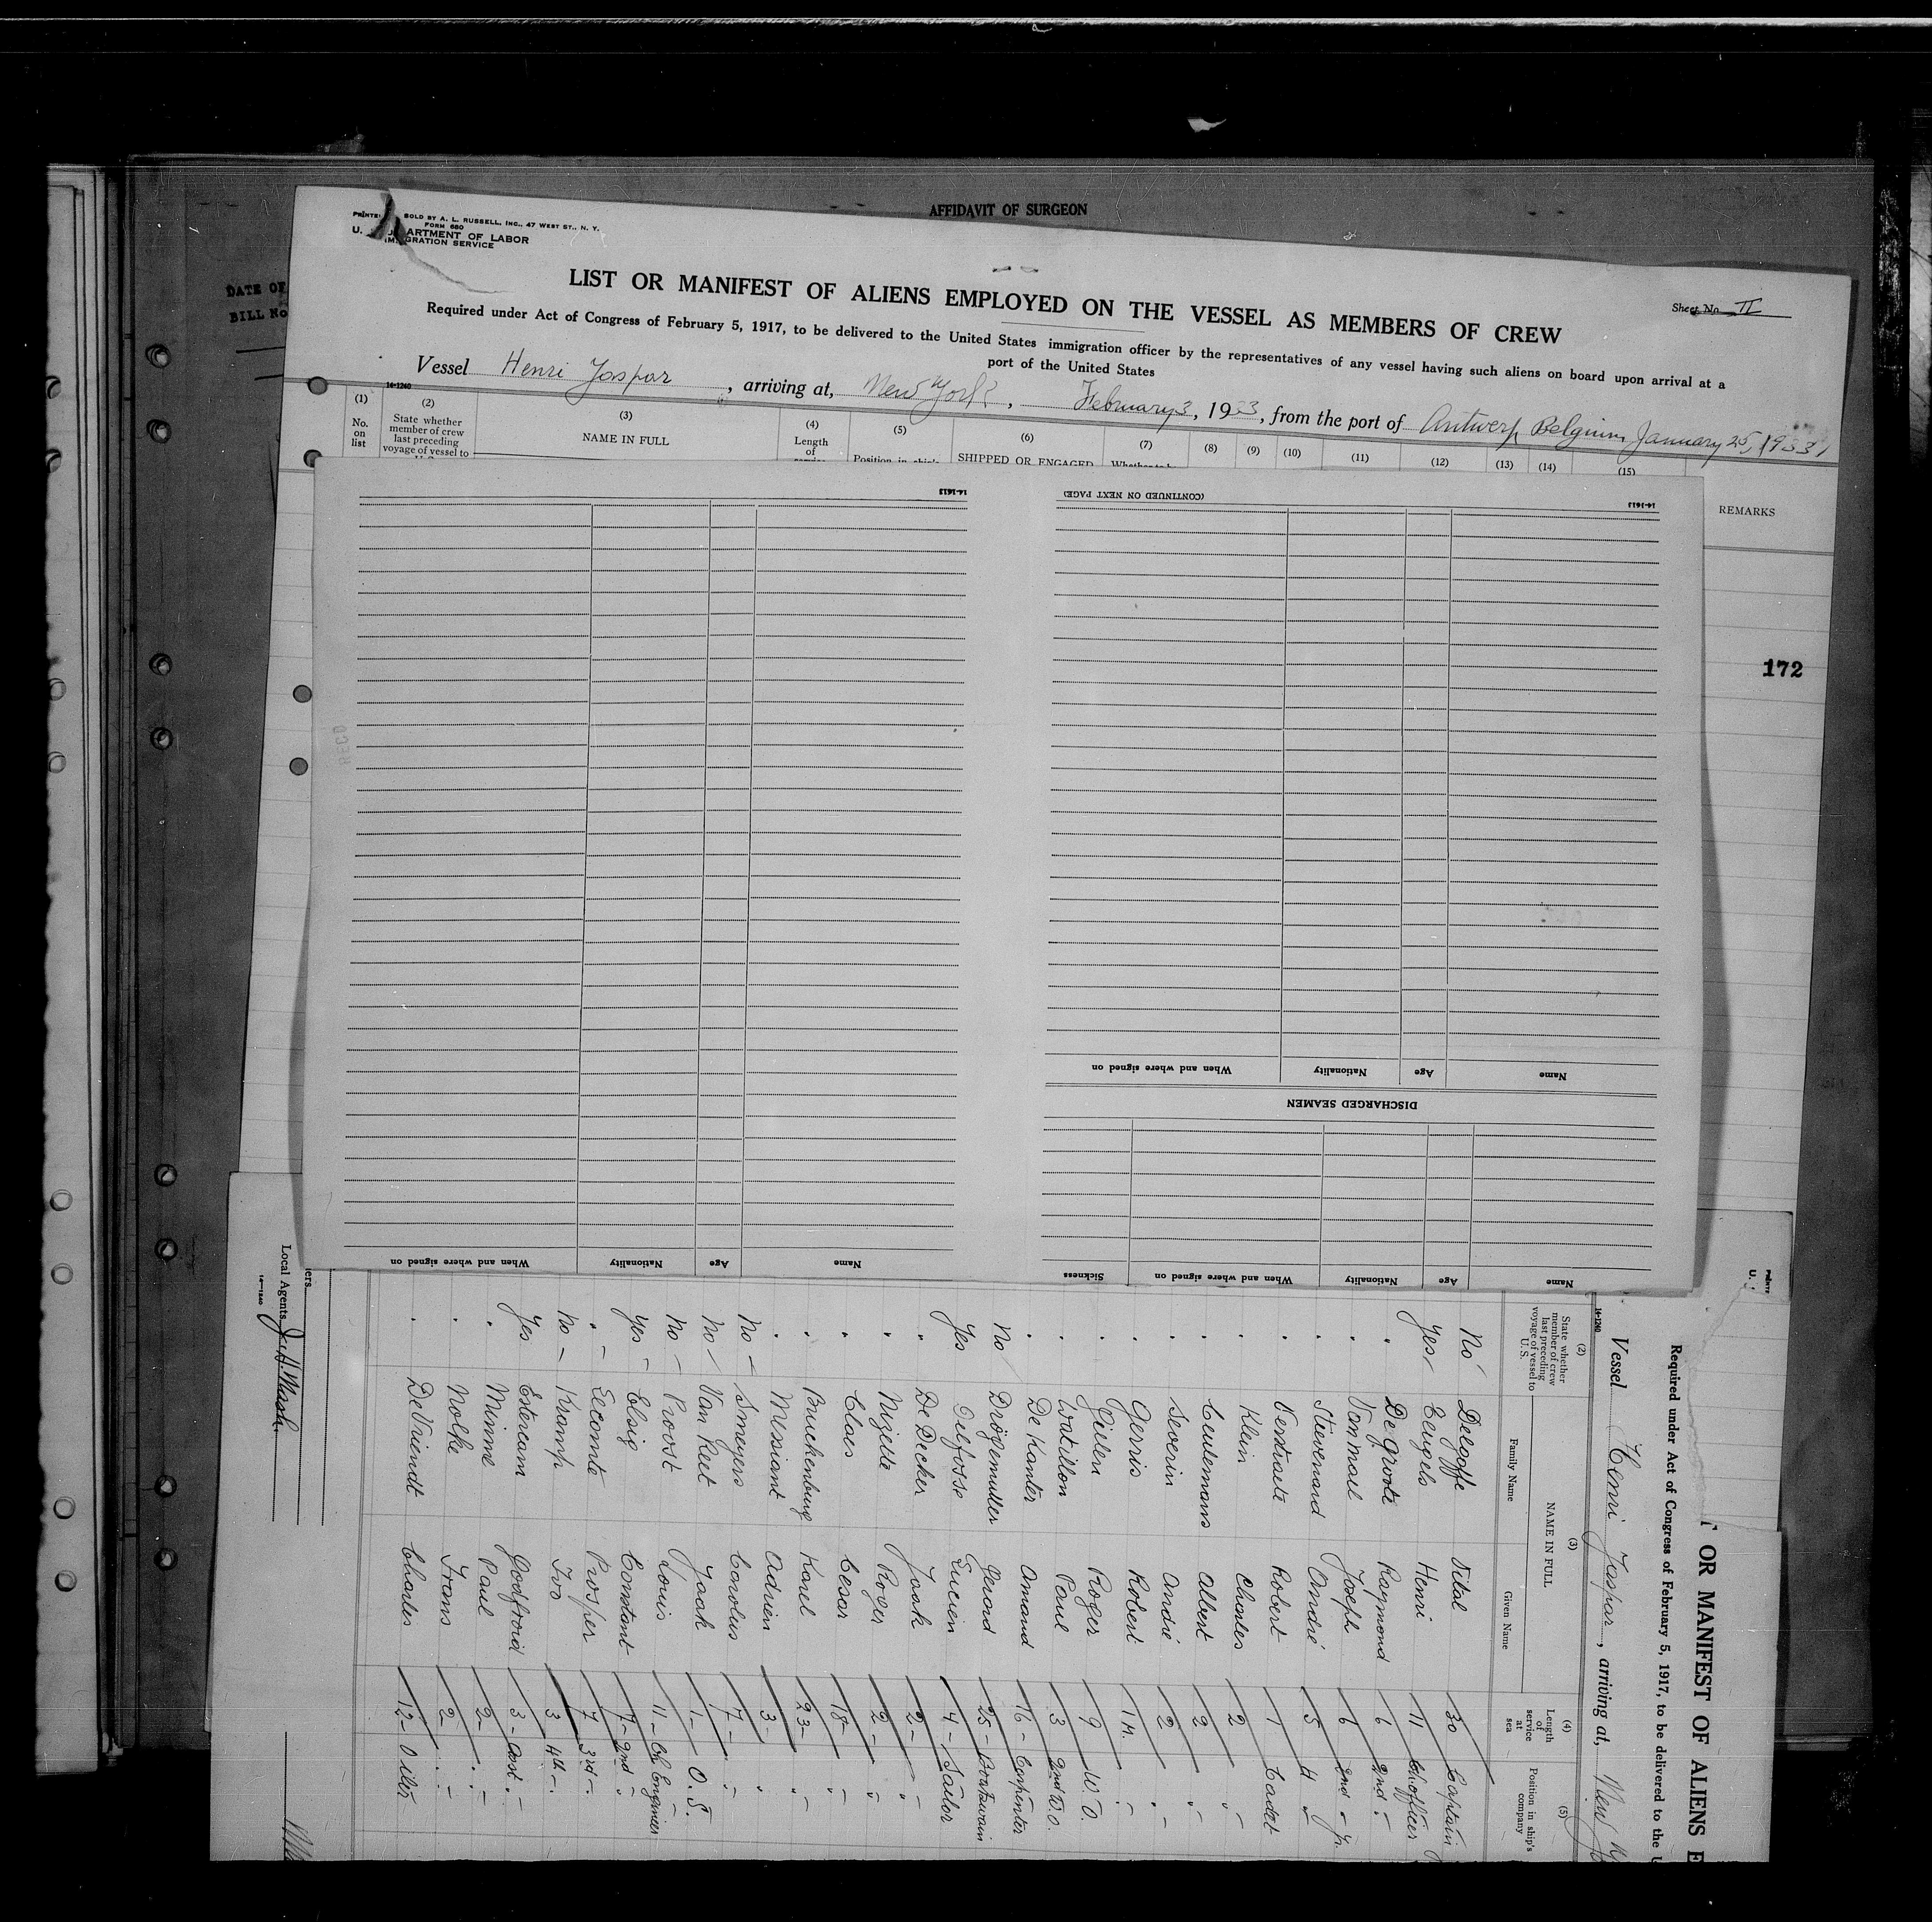 AFFIDAVIT OF SURGEON
DATE OF
BILL No
SOLD BY A. L. RUSSELL, INC., 47 WEST ST., N. Y.
FORM 680
U. ARTMENT OF LABOR
IMMIGRATION SERVICE
LIST OR MANIFEST OF ALIENS EMPLOYED ON THE VESSEL AS MEMBERS OF CREW
Sheet No. II
Required under Act of Congress of February 5, 1917, to be delivered to the United States immigration officer by the representatives of any vessel having such aliens on board upon arrival at a
port of the United States
Vessel Henri Jaspar, arriving at, New York, February 3, 1933, from the port of Antwerp Belgium January 25, 1933
14-1240
(1) (2) (3) (4) (5) (6) (7) (8) (9) (10) (11) (12) (13) (14) (15)
No. on list
State whether member of crew last preceding voyage of vessel to
NAME IN FULL
Length of
Position in ship's
SHIPPED OR ENGAGED
Whether to be
REMARKS
172
14-1613
(CONTINUED ON NEXT PAGE)
14-1613
Name Age Nationality When and where signed on
DISCHARGED SEAMEN
Name Age Nationality When and where signed on Sickness
Name Age Nationality When and where signed on
T OR MANIFEST OF ALIENS E
Required under Act of Congress of February 5, 1917, to be delivered to the U
Vessel Henri Jaspar, arriving at, New Yo
14-1240
(2) (3) (4) (5)
State whether member of crew last preceding voyage of vessel to U.S.
NAME IN FULL
Family Name Given Name
Length of service at sea
Position in ship's company
No Delgoffe Vital 30 Captain
Yes Ceugels Henri 11 Ch officer
" De groote Raymond 6 2nd "
" Van mael Joseph 6 2nd " Jr.
" Stievenard André 5 4 "
" Verstraete Robert 1 Cadet
" Klein Charles 2 "
" Ceulemans Albert 2 "
" Severin André 2 "
" Gerris Robert 1 M. "
" Gielen Roger 9 W.O
" Watillon Paul 3 2nd W.O.
" De Kanter Amand 16 Carpenter
No Drögemuller Gerard 25 Boatswain
Yes Delfosse Lucien 4 Sailor
" De Decker Jaak 2 "
" Nizette Roger 2 "
" Claes Cesar 18 "
" Buchenburg Karel 23 "
" Missiant Adrien 3 "
No Smeyers Carolus 7 "
No Van Reet Jaak 1 O.S.
No Proost Louis 11 Ch Engineer
Yes Elsig Constant 7 2nd "
" Lecomte Prosper 7 3rd "
No Kramp Ivo 3 4th "
Yes Estercam Godfroid 3 Asst. "
" Minne Paul 2 "
" Nolke Frans 2 "
" De Vriendt Charles 12 Oiler
ers.
Local Agents J. H. Marsh
14-1240